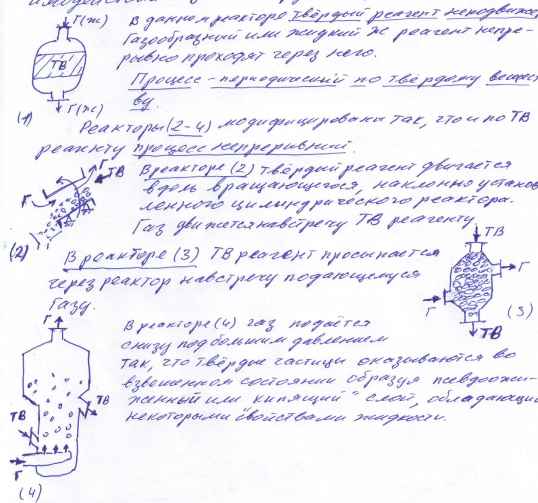 Г(ж)
В данном реакторе твёрдый реагент неподвижен,
Газообразный или жидкий Ж реагент непре-
рывно проходят через него.
ТВ
Процесс - периодический по твёрдому вещест-
ву.
Г(ж)
(1)
Реакторы (2-4) модифицированы так, что и по ТВ
реагенту процесс непрерывний.
Г
ТВ
Г
В реакторе (2) твёрдий реагент двигается
вдоль вращающегося, наклонно установ-
ленного цилиндрического реактора.
Газ движется навстречу ТВ реагенту
(2)
В реакторе (3) ТВ реагент просыпается
через реактор навстречу подающемуся
газу.
ТВ
Г
Г
ТВ
(3)
Г
В реакторе (4) газ подаётся
снизу под большим давлением
так, что твёрдые частицы оказываются во
взвешенном состоянии образуя псевдоожи-
женный или "кипящий" слой, обладающий
некоторыми свойствами жидкости.
ТВ
ТВ
Г
(4)